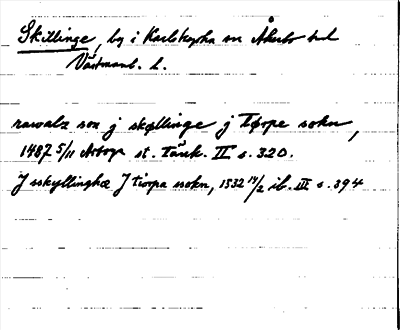 Skillinge, by i Karlskyrka sn Åkerbo hd
Västmanl. l.
rawalz son j skøllinge j Tjøpe sokn,
1487 5/11 Arboga st. Tänk. II s. 320.
J sskyllinghæ J tiorpa sokn, 1532 14/2 ib. III s. 394